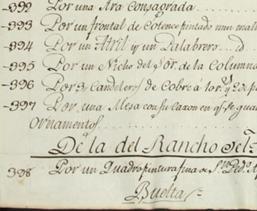 -392 Por una Ara Consagrada
-393 Por un frontal de Cotence pintado mui malt
-394 Por un Atril y un Palabrero
-395 Por un Nicho del Sor. de la Columna
-396 Por Candeleros de Cobre á
-397 Por una Mesa con su Caxon en q.e se guar
Ornamentos
De la del Rancho
398 Por un Quadro pintura fina
Buelta